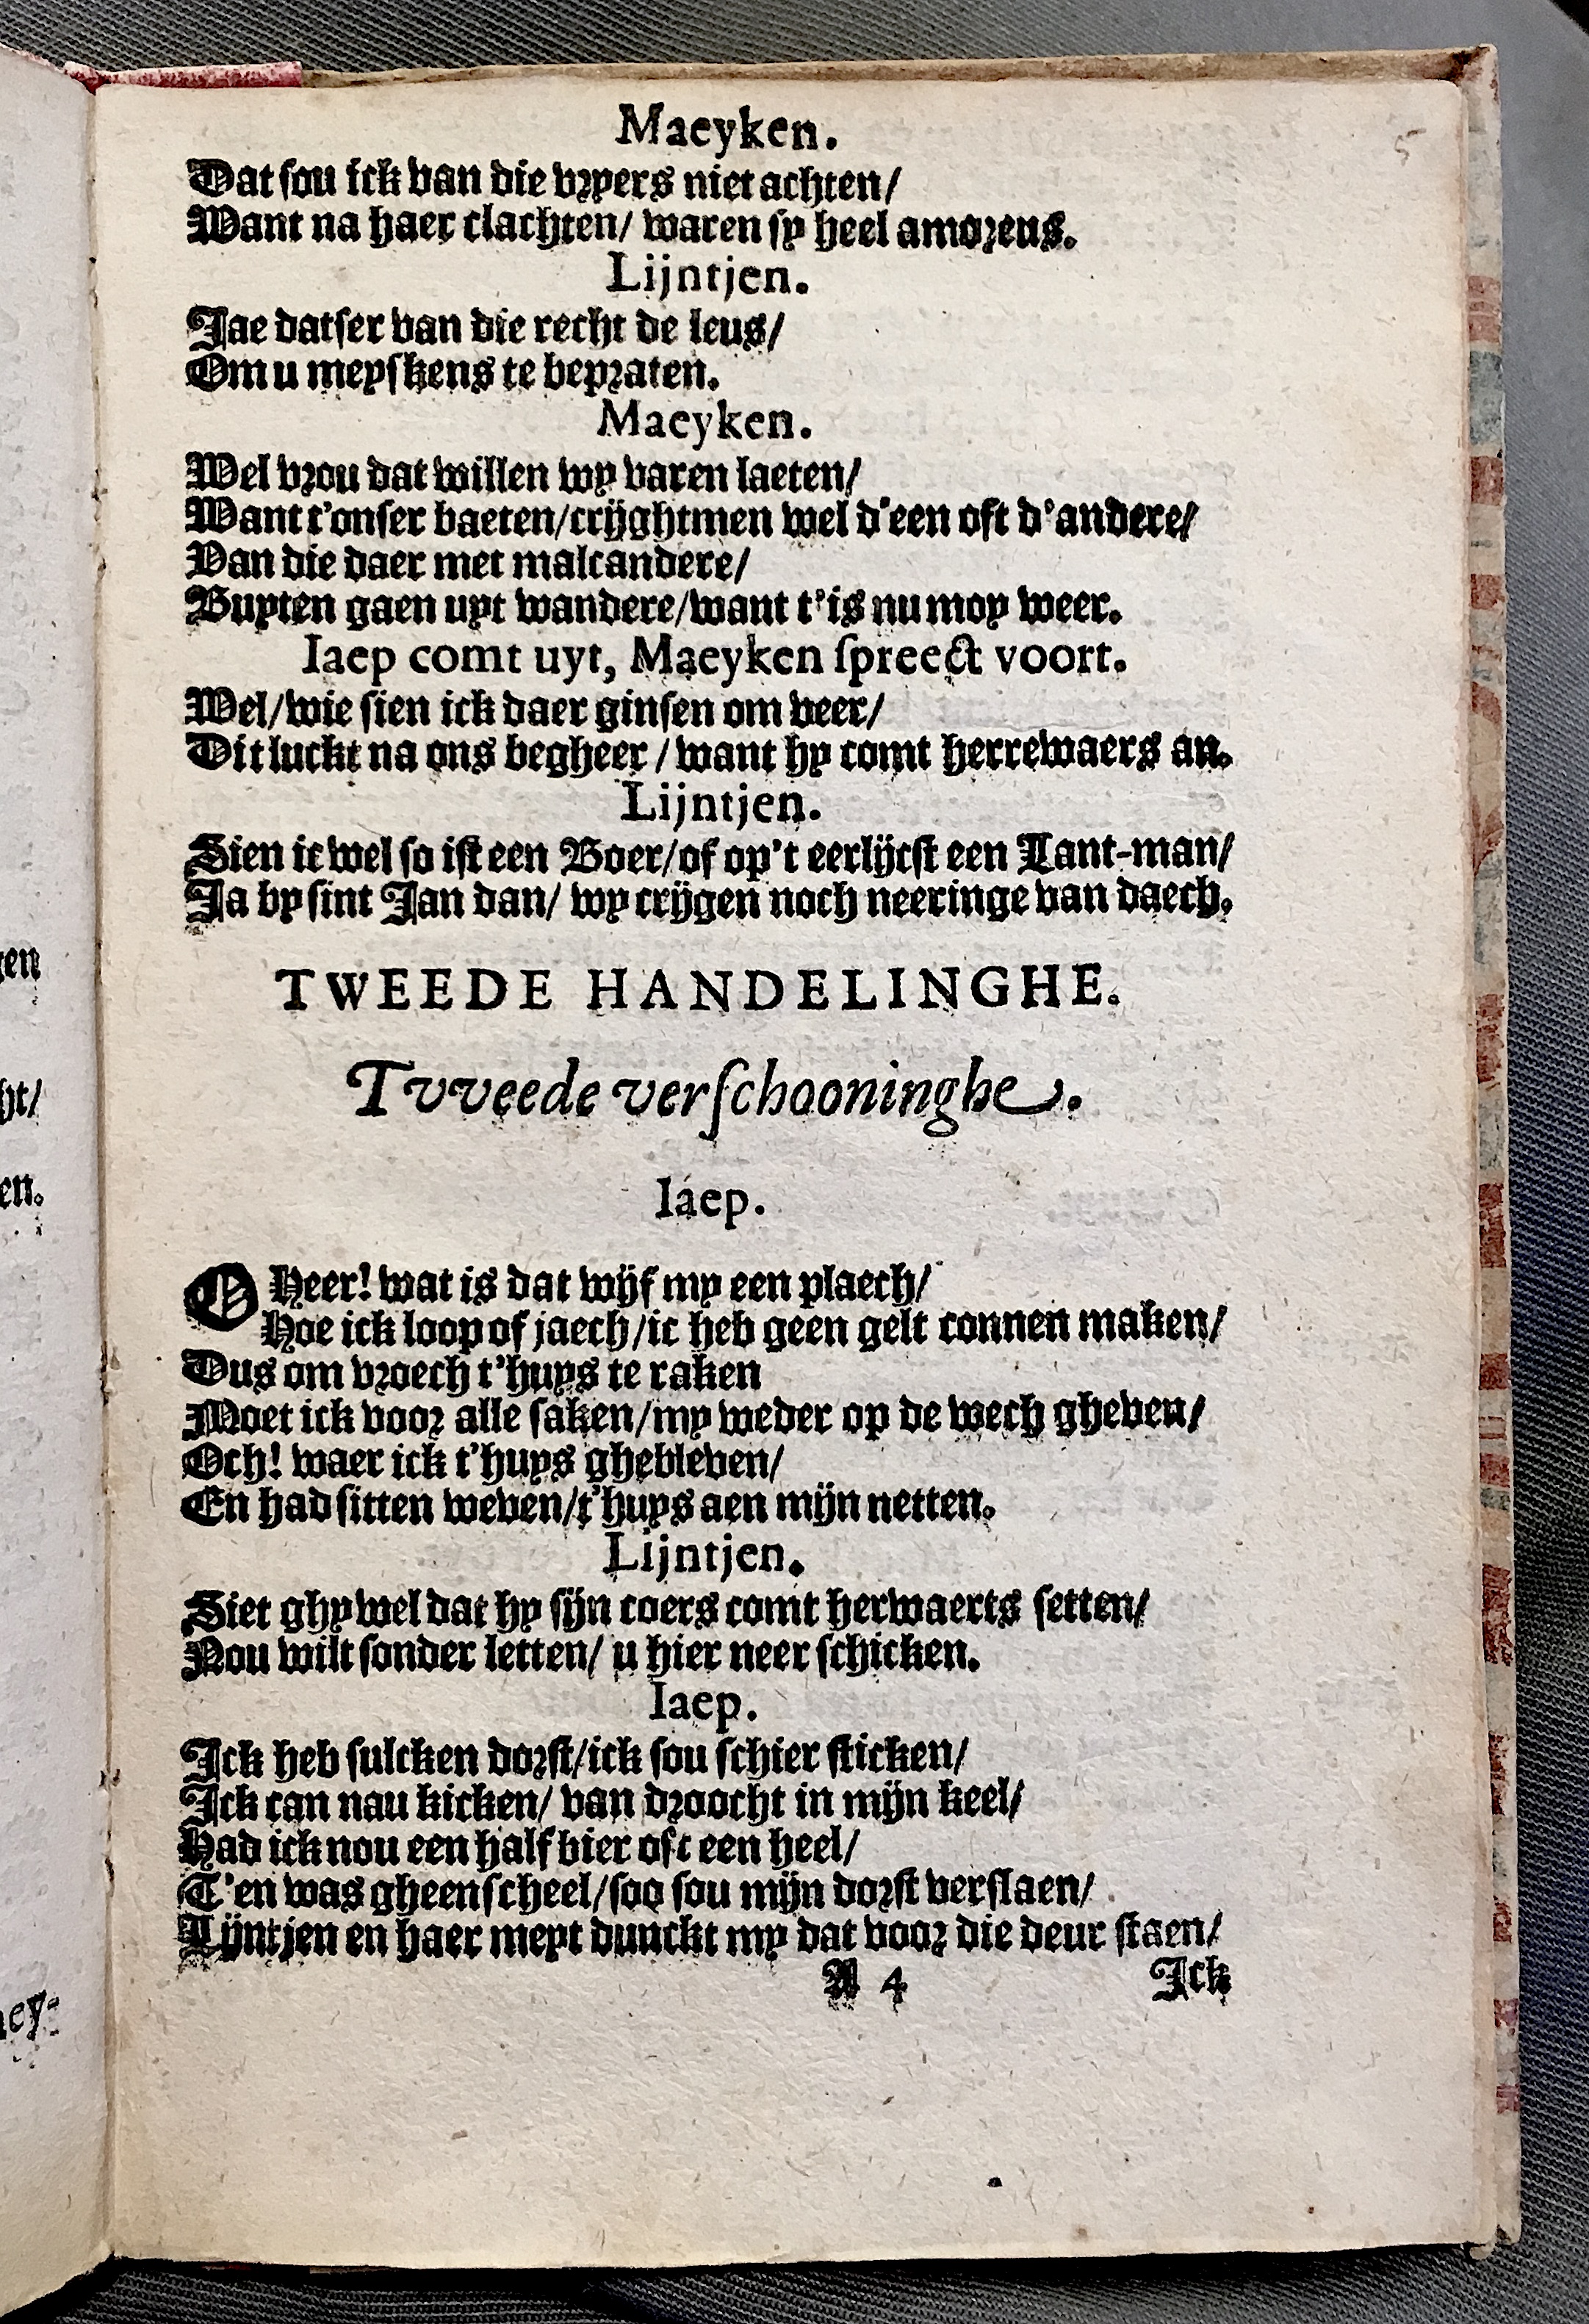 5
Maeyken.
Dat sou ick van die vryers niet achten/
Want na haer clachten/ waren sy heel amoreus.
Lijntjen.
Jae datser van die recht de leus/
Om u meyskens te bepraten.
Maeyken.
Wel vrou dat willen wy varen laeten/
Want t'onser baeten/crijghtmen wel d'een oft d'andere/
Van die daer met malcandere/
Buyten gaen uyt wandere/want t'is nu moy weer.
Iaep comt uyt, Maeyken spreect voort.
Wel/wie sien ick daer ginsen om veer/
Dit luckt na ons begheer / want hy comt herrewaers an.
Lijntjen.
Sien ic wel so ist een Boer/of op't eerlijcst een Lant-man/
Ja by sint Jan dan/ wy crijgen noch neeringe van daech.
TWEEDE HANDELINGHE.
Tvveede verschooninghe.
Iaep.
O Heer! wat is dat wijf my een plaech/
Hoe ick loop of jaech/ic heb geen gelt connen maken/
Dus om vroech t'huys te raken
Moet ick voor alle saken/my weder op de wech gheven/
Och! waer ick t'huys ghebleven/
En had sitten weven/t'huys aen mijn netten.
Lijntjen.
Siet ghy wel dat hy sijn coers comt herwaerts setten/
Nou wilt sonder letten/ u hier neer schicken.
Iaep.
Ick heb sulcken dorst/ick sou schier sticken/
Ick can nau kicken/ van droocht in mijn keel/
Had ick nou een half bier oft een heel/
T'en was gheen scheel/soo sou mijn dorst verslaen/
Lijntjen en haer meyt dunckt my dat voor die deur staen/
A 4 Ick